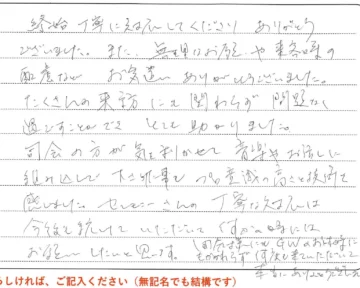 終始丁寧に対応してください ありがとう
ございました。また、無理なお願いや来客時の
配慮など お気遣い ありがとうございました。
たくさんの来訪にも関わらず 問題なく
過ごすことができ とても助かりました。
司会の方が気を利かせて 音楽やお話しに
組み込んで プロ意識の高さを
感じました。セレモニーさんの丁寧な対応は
今後も続けていただいて の時には
お願いしたいと思います。
GWのお忙しい時にも
かかわらず 何度も来ていただいて
本当にありがとうございました
ろしければ、ご記入ください（無記名でも結構です）